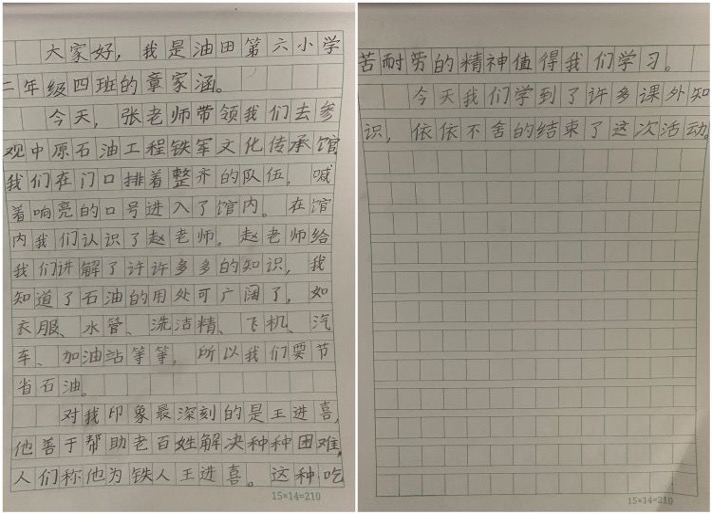 大家好，我是油田第六小学
二年级四班的章家涵。
今天，张老师带领我们去参
观中原石油工程铁军文化传承馆
我们在门口排着整齐的队伍，喊
着响亮的口号进入了馆内。在馆
内我们认识了赵老师，赵老师给
我们讲解了许许多多的知识，我
知道了石油的用处可广阔了，如
衣服、水管、洗洁精、飞机、汽
车、加油站等等，所以我们要节
省石油。
对我印象最深刻的是王进喜，
他善于帮助老百姓解决种种困难，
人们称他为铁人王进喜。这种吃
15×14=210
苦耐劳的精神值得我们学习。
今天我们学到了许多课外知
识，依依不舍的结束了这次活动。
15×14=210